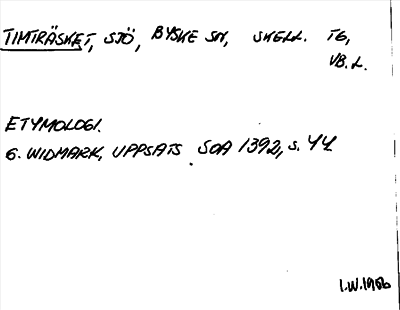 TIMTRÄSKET, SJÖ, BYSKE SN, SKELL. TG,
VB. L.
ETYMOLOGI.
G. WIDMARK, UPPSATS SOA 1392, S. 44.
I.W. 1986